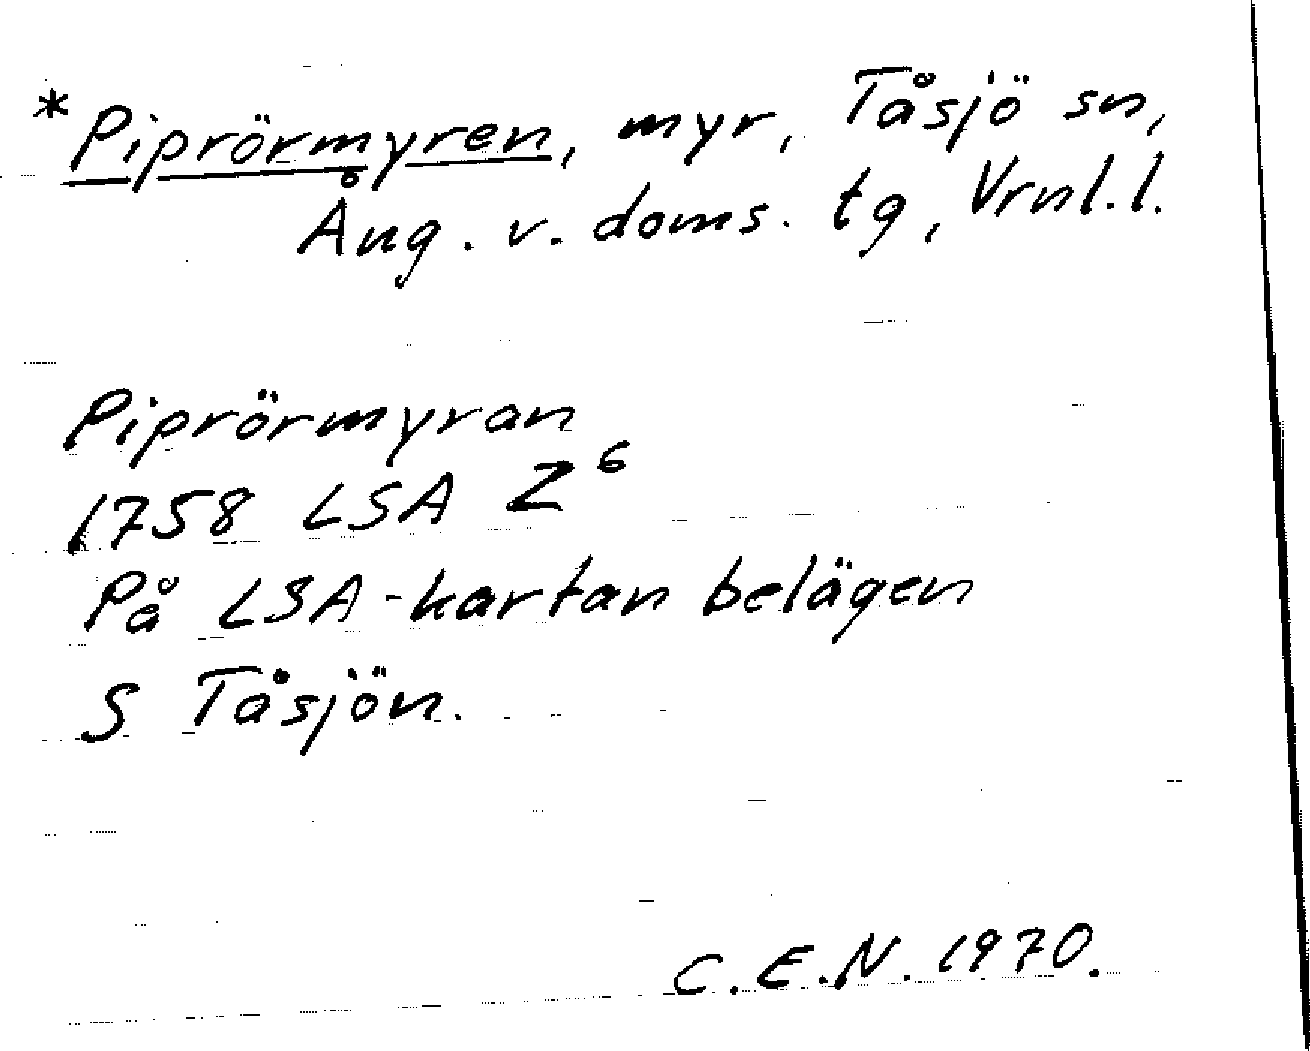 *Piprörmyren, myr, Tåsjö sn,
Ång. v. doms. tg, Vrnl.l.
Piprörmyran
1758 LSA Z⁶
På LSA-kartan belägen
S Tåsjön.
C.E.N. 1970.